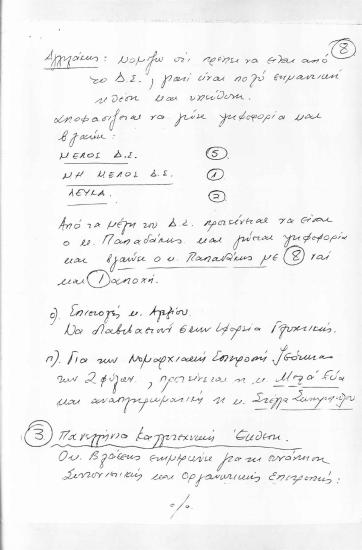 8
Αγγελάκης: νομίζω ότι πρέπει να είναι από
το Δ.Σ., γιατί είναι πολύ σημαντική
η θέση και υπεύθυνη.
Αποφασίζεται να γίνει ψηφοφορία και
βγαίνει:
ΜΕΛΟΣ Δ.Σ. 5
ΜΗ ΜΕΛΟΣ Δ.Σ. 1
ΛΕΥΚΑ. 2
Από τα μέλη του Δ.Σ. προτείνεται να είναι
ο κ. Παπαδάκης και γίνεται ψηφοφορία
και βγαίνει ο κ. Παπαδάκης με 8 ναι
και 1 αποχή.
ο) Επιστολή κ.
Να διαβιβαστεί στην Εφορεία
π). Για την Νομαρχιακή Επιτροπή Ισότητας
των 2 φύλων, προτείνεται η κ.
και αναπληρωματική η κ. Στέλλα
3. Πανελλήνια Καλλιτεχνική Έκθεση.
Ο κ. Βλάσσης ενημερώνει για τη συνάντηση
Συντονιστικής και Οργανωτικής Επιτροπής:
./.